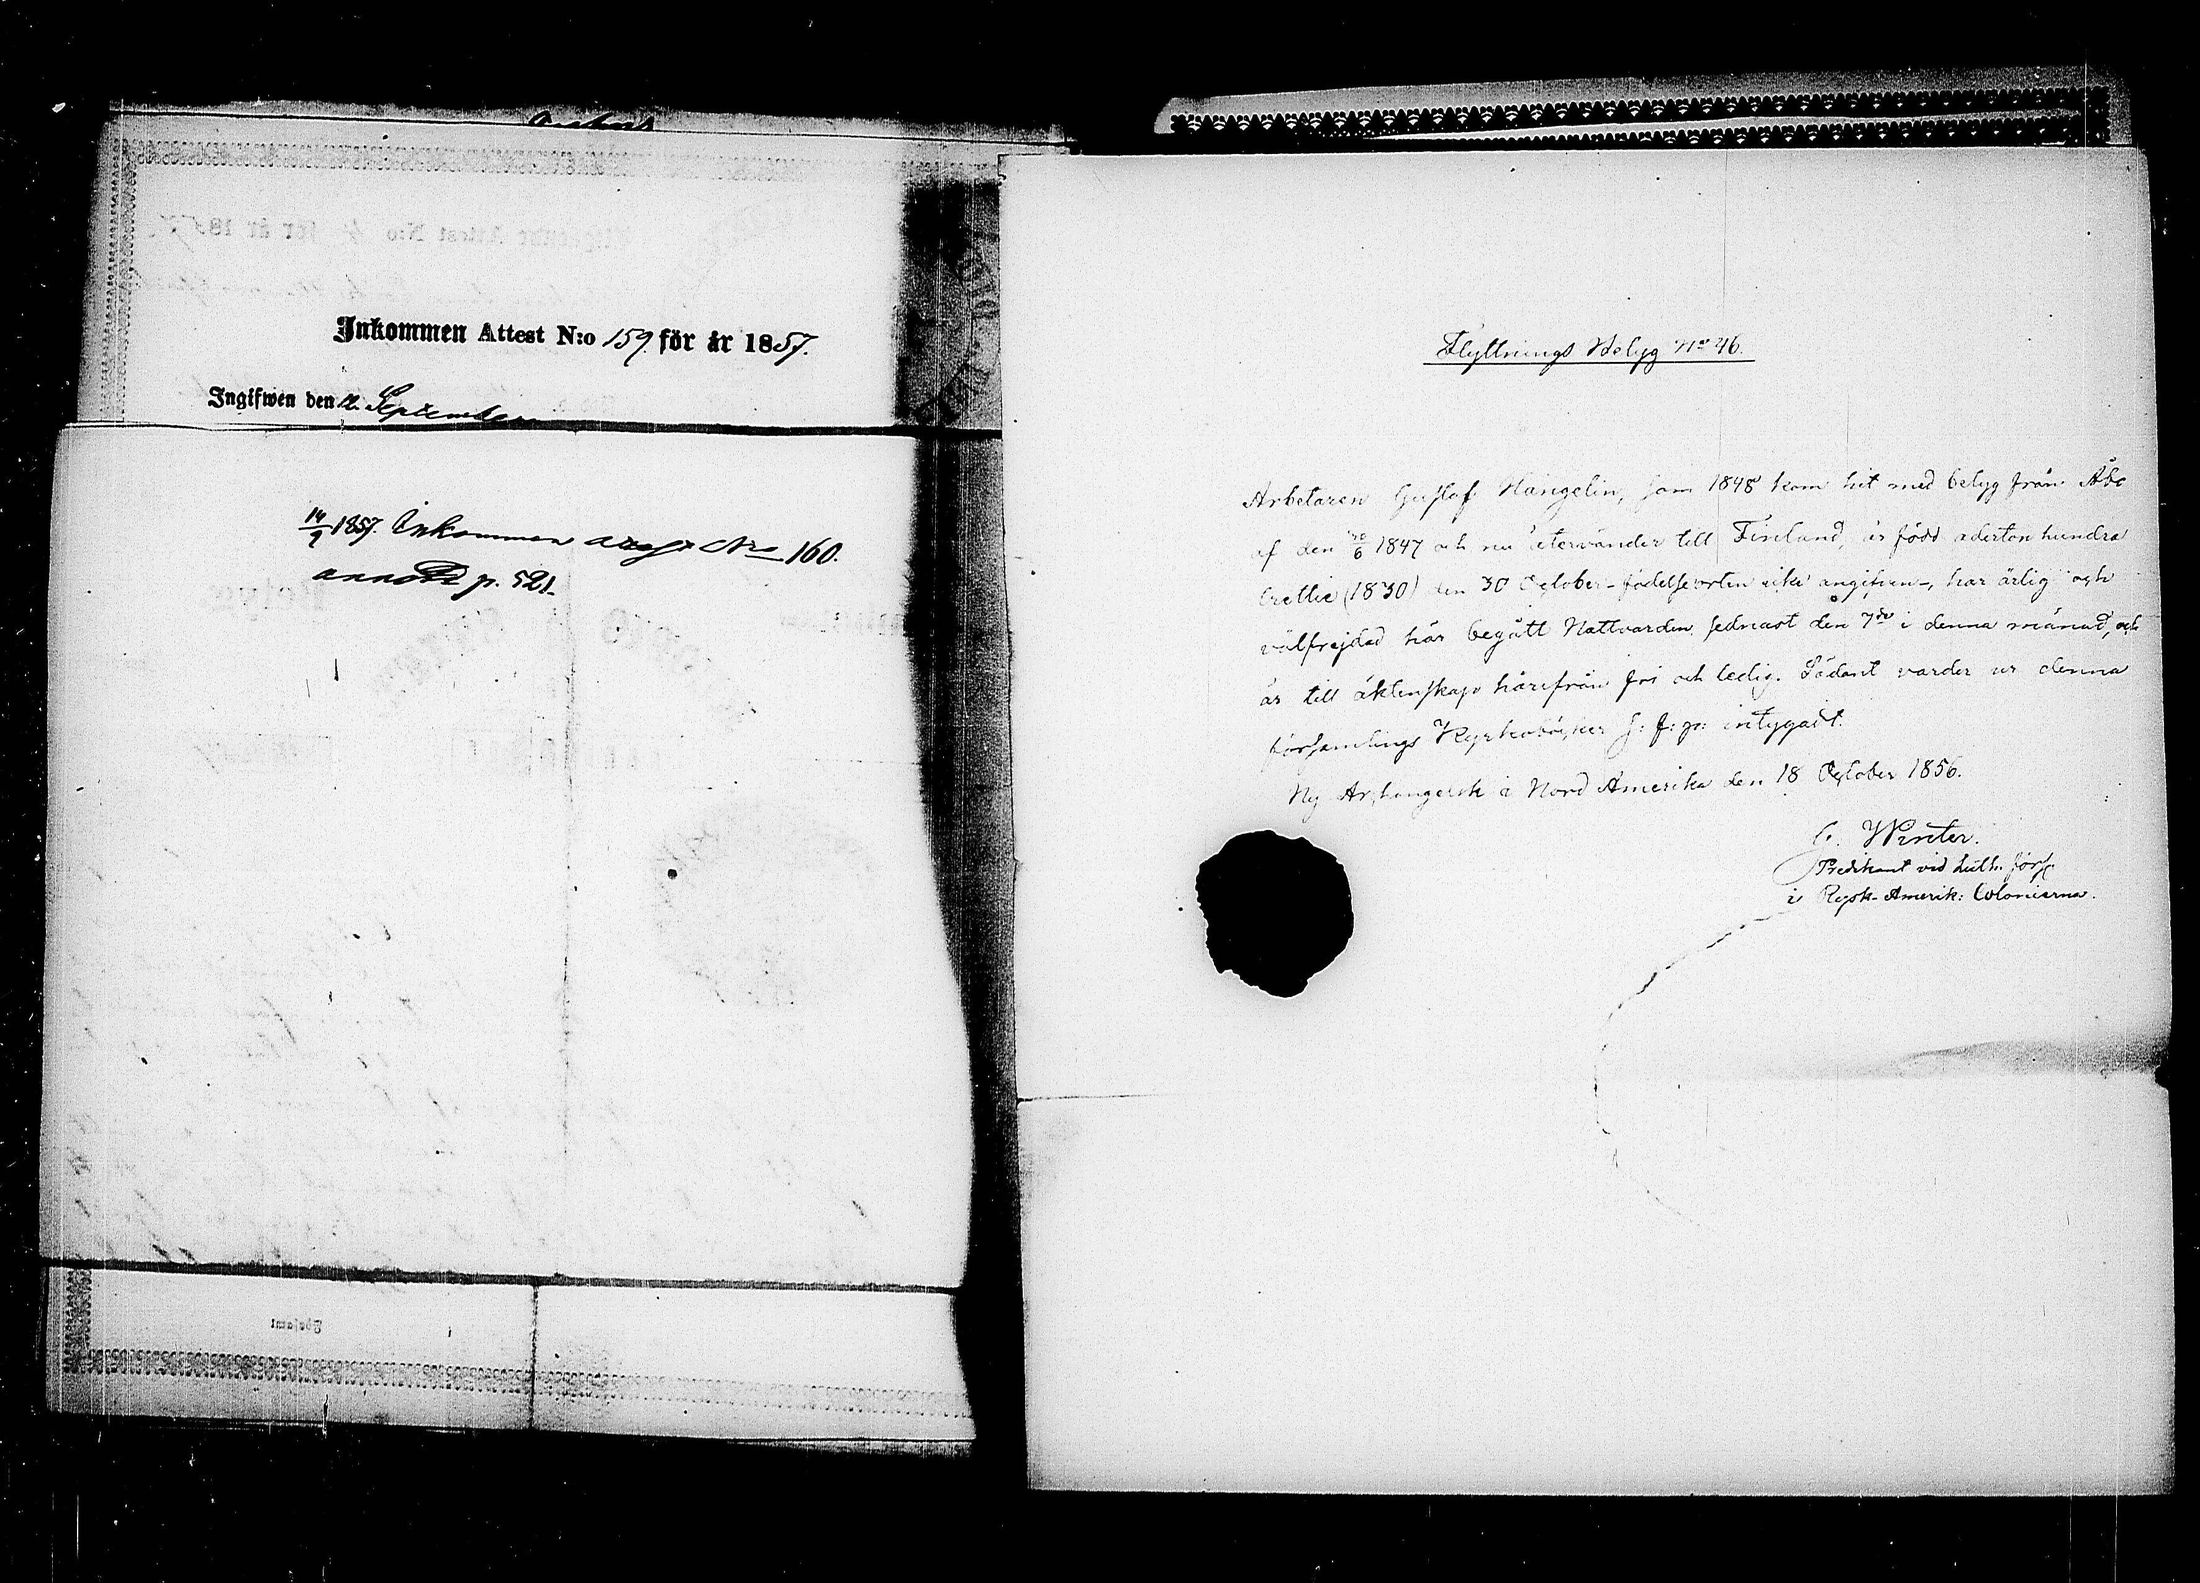 Inkommen Attest N:o 159. för år 1857.
Ingifwen den 12. September
14/9 1857. Inkommen attest No 160.
annoterad p. 521.
Flyttnings Betyg No 46.
Arbetaren Gustaf Hangelin, som 1848 kom hit med betyg från Åbo
af den 6 1847 och nu återvänder till Finland, är född aderton hundra
trettio (1830) den 30 October - födelseorten icke angifven -, har ärlig och
välfrejdad här begått Nattvarden sednast den 7de i denna månad, och
är till äktenskap härifrån fri och ledig. Sådant varder ur denna
församlings Kyrkoböcker s: f: p: intygadt.
Ny Archangelsk i Nord Amerika den 18 October 1856.
G. Winter.
Predikant vid Luth. förs.
i Rysk-Amerik: Colonierna.